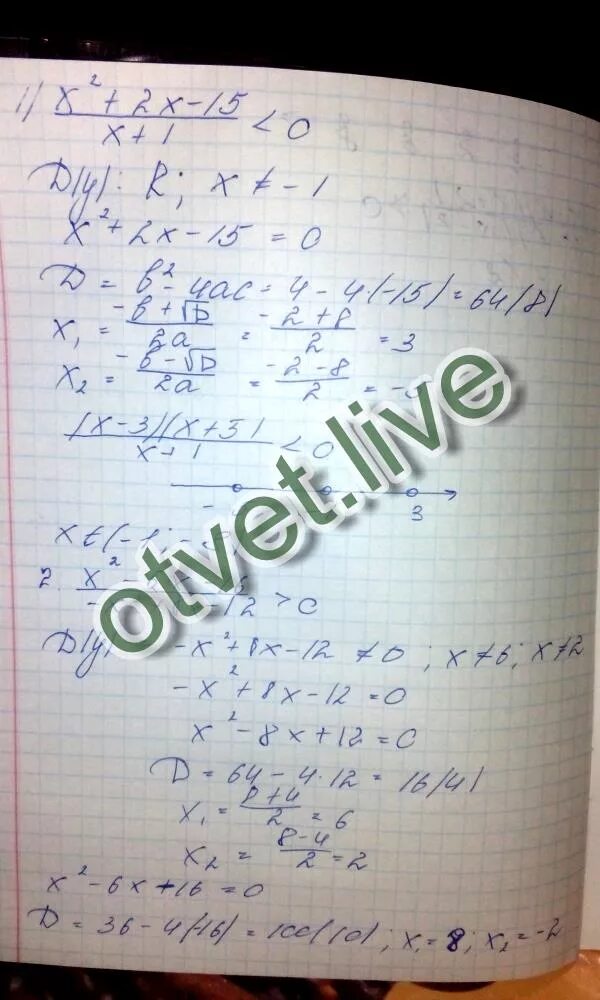 1) x² + 2x - 15 / x + 1 < 0
D(y): R; x ≠ -1
x² + 2x - 15 = 0
D = b² - 4ac = 4 - 4·(-15) = 64 (8)
x₁ = -b + √D / 2a = -2 + 8 / 2 = 3
x₂ = -b - √D / 2a = -2 - 8 / 2 = -
(x - 3)(x + 5) / x + 1 < 0
3
x ∈ (-
2. x² / -12 > 0
D(y) -x² + 8x - 12 ≠ 0; x ≠ 6; x ≠ 2
-x² + 8x - 12 = 0
x² - 8x + 12 = 0
D = 64 - 4·12 = 16 (4)
x₁ = 8 + 4 / 2 = 6
x₂ = 8 - 4 / 2 = 2
x² - 6x + 16 = 0
D = 36 - 4(-16) = 100 (10); x₁ = 8; x₂ = -2
otvet.live